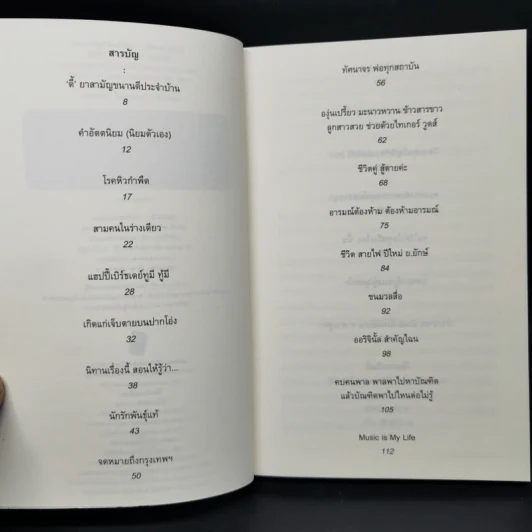 สารบัญ
:
'ตี้' ยาสามัญขนานดีประจำบ้าน
8
คำอัตตนิยม (นิยมตัวเอง)
12
โรคหิวกำพืด
17
สามคนในร่างเดียว
22
แฮปปี้เบิร์ธเดย์ทูมี ทู้มี
28
เกิดแก่เจ็บตายบนปากโอ่ง
32
นิทานเรื่องนี้ สอนให้รู้ว่า...
38
นักรักพันธุ์แท้
43
จดหมายถึงกรุงเทพฯ
50
ทัศนาจร พ่อทุกสถาบัน
56
องุ่นเปรี้ยว มะนาวหวาน ข้าวสารขาว
ลูกสาวสวย ช่วยด้วยไทเกอร์ วูดส์
62
ชีวิตคู่ สู้ตายค่ะ
68
อารมณ์ต้องห้าม ต้องห้ามอารมณ์
75
ชีวิต สายไฟ ปีใหม่ ย.ยักษ์
84
ชนมวลสื่อ
92
ออริจินั้ล สำคัญไฉน
98
คบคนพาล พาลพาไปหาบัณฑิต
แล้วบัณฑิตพาไปไหนต่อไม่รู้
105
Music is My Life
112